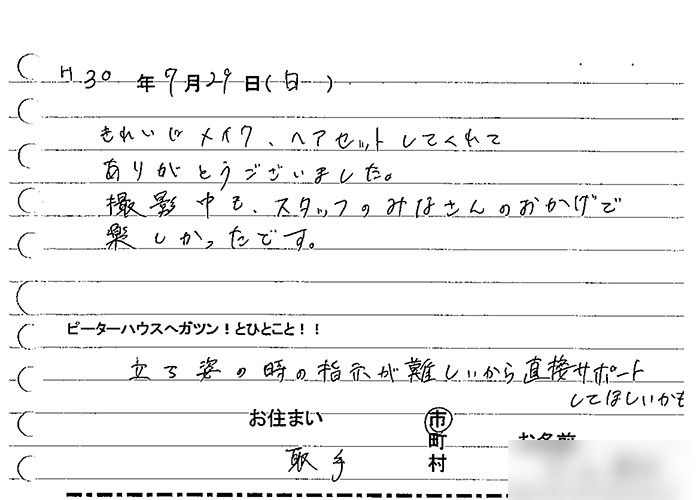 H30年7月29日(日)
きれいなメイク、ヘアセットしてくれて
ありがとうございました。
撮影中も、スタッフのみなさんのおかげで
楽しかったです。
ピーターハウスへガツン!とひとこと!!
立ち姿の時の指示が難しいから直接サポート
してほしいかも
お住まい
取手
市
町
村
お名前